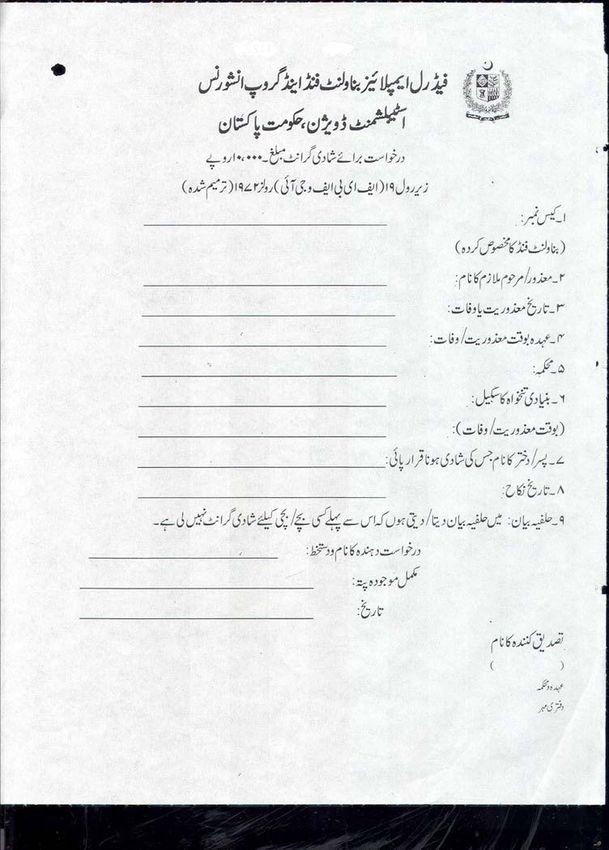 فیڈرل ایمپلائیز بناولنٹ فنڈ اینڈ گروپ انشورنس
اسٹیبلشمنٹ ڈویژن، حکومت پاکستان
درخواست برائے شادی گرانٹ مبلغ۔۱۰،۰۰۰ روپے
زیر رول ۱۹(ایف ای بی ایف و جی آئی) رولز ۱۹۷۲ (ترمیم شدہ)
۱۔ کیس نمبر:
(بناولنٹ فنڈ کا مخصوص کردہ)
۲۔ معذور/مرحوم ملازم کا نام:
۳۔ تاریخ معذوریت یا وفات:
۴۔ عہدہ بوقت معذوریت/وفات:
۵۔ محکمہ:
۶۔ بنیادی تنخواہ کا سکیل:
(بوقت معذوریت/وفات):
۷۔ پسر/دختر کا نام جس کی شادی ہونا قرار پائی:
۸۔ تاریخ نکاح:
۹۔ حلفیہ بیان: میں حلفیہ بیان دیتا/دیتی ہوں کہ اس سے پہلے کسی بچے/بچی کیلئے شادی گرانٹ نہیں لی ہے۔
درخواست دہندہ کا نام و دستخط:
مکمل موجودہ پتہ:
تاریخ:
تصدیق کنندہ کا نام
( )
عہدہ و محکمہ
دفتری مہر